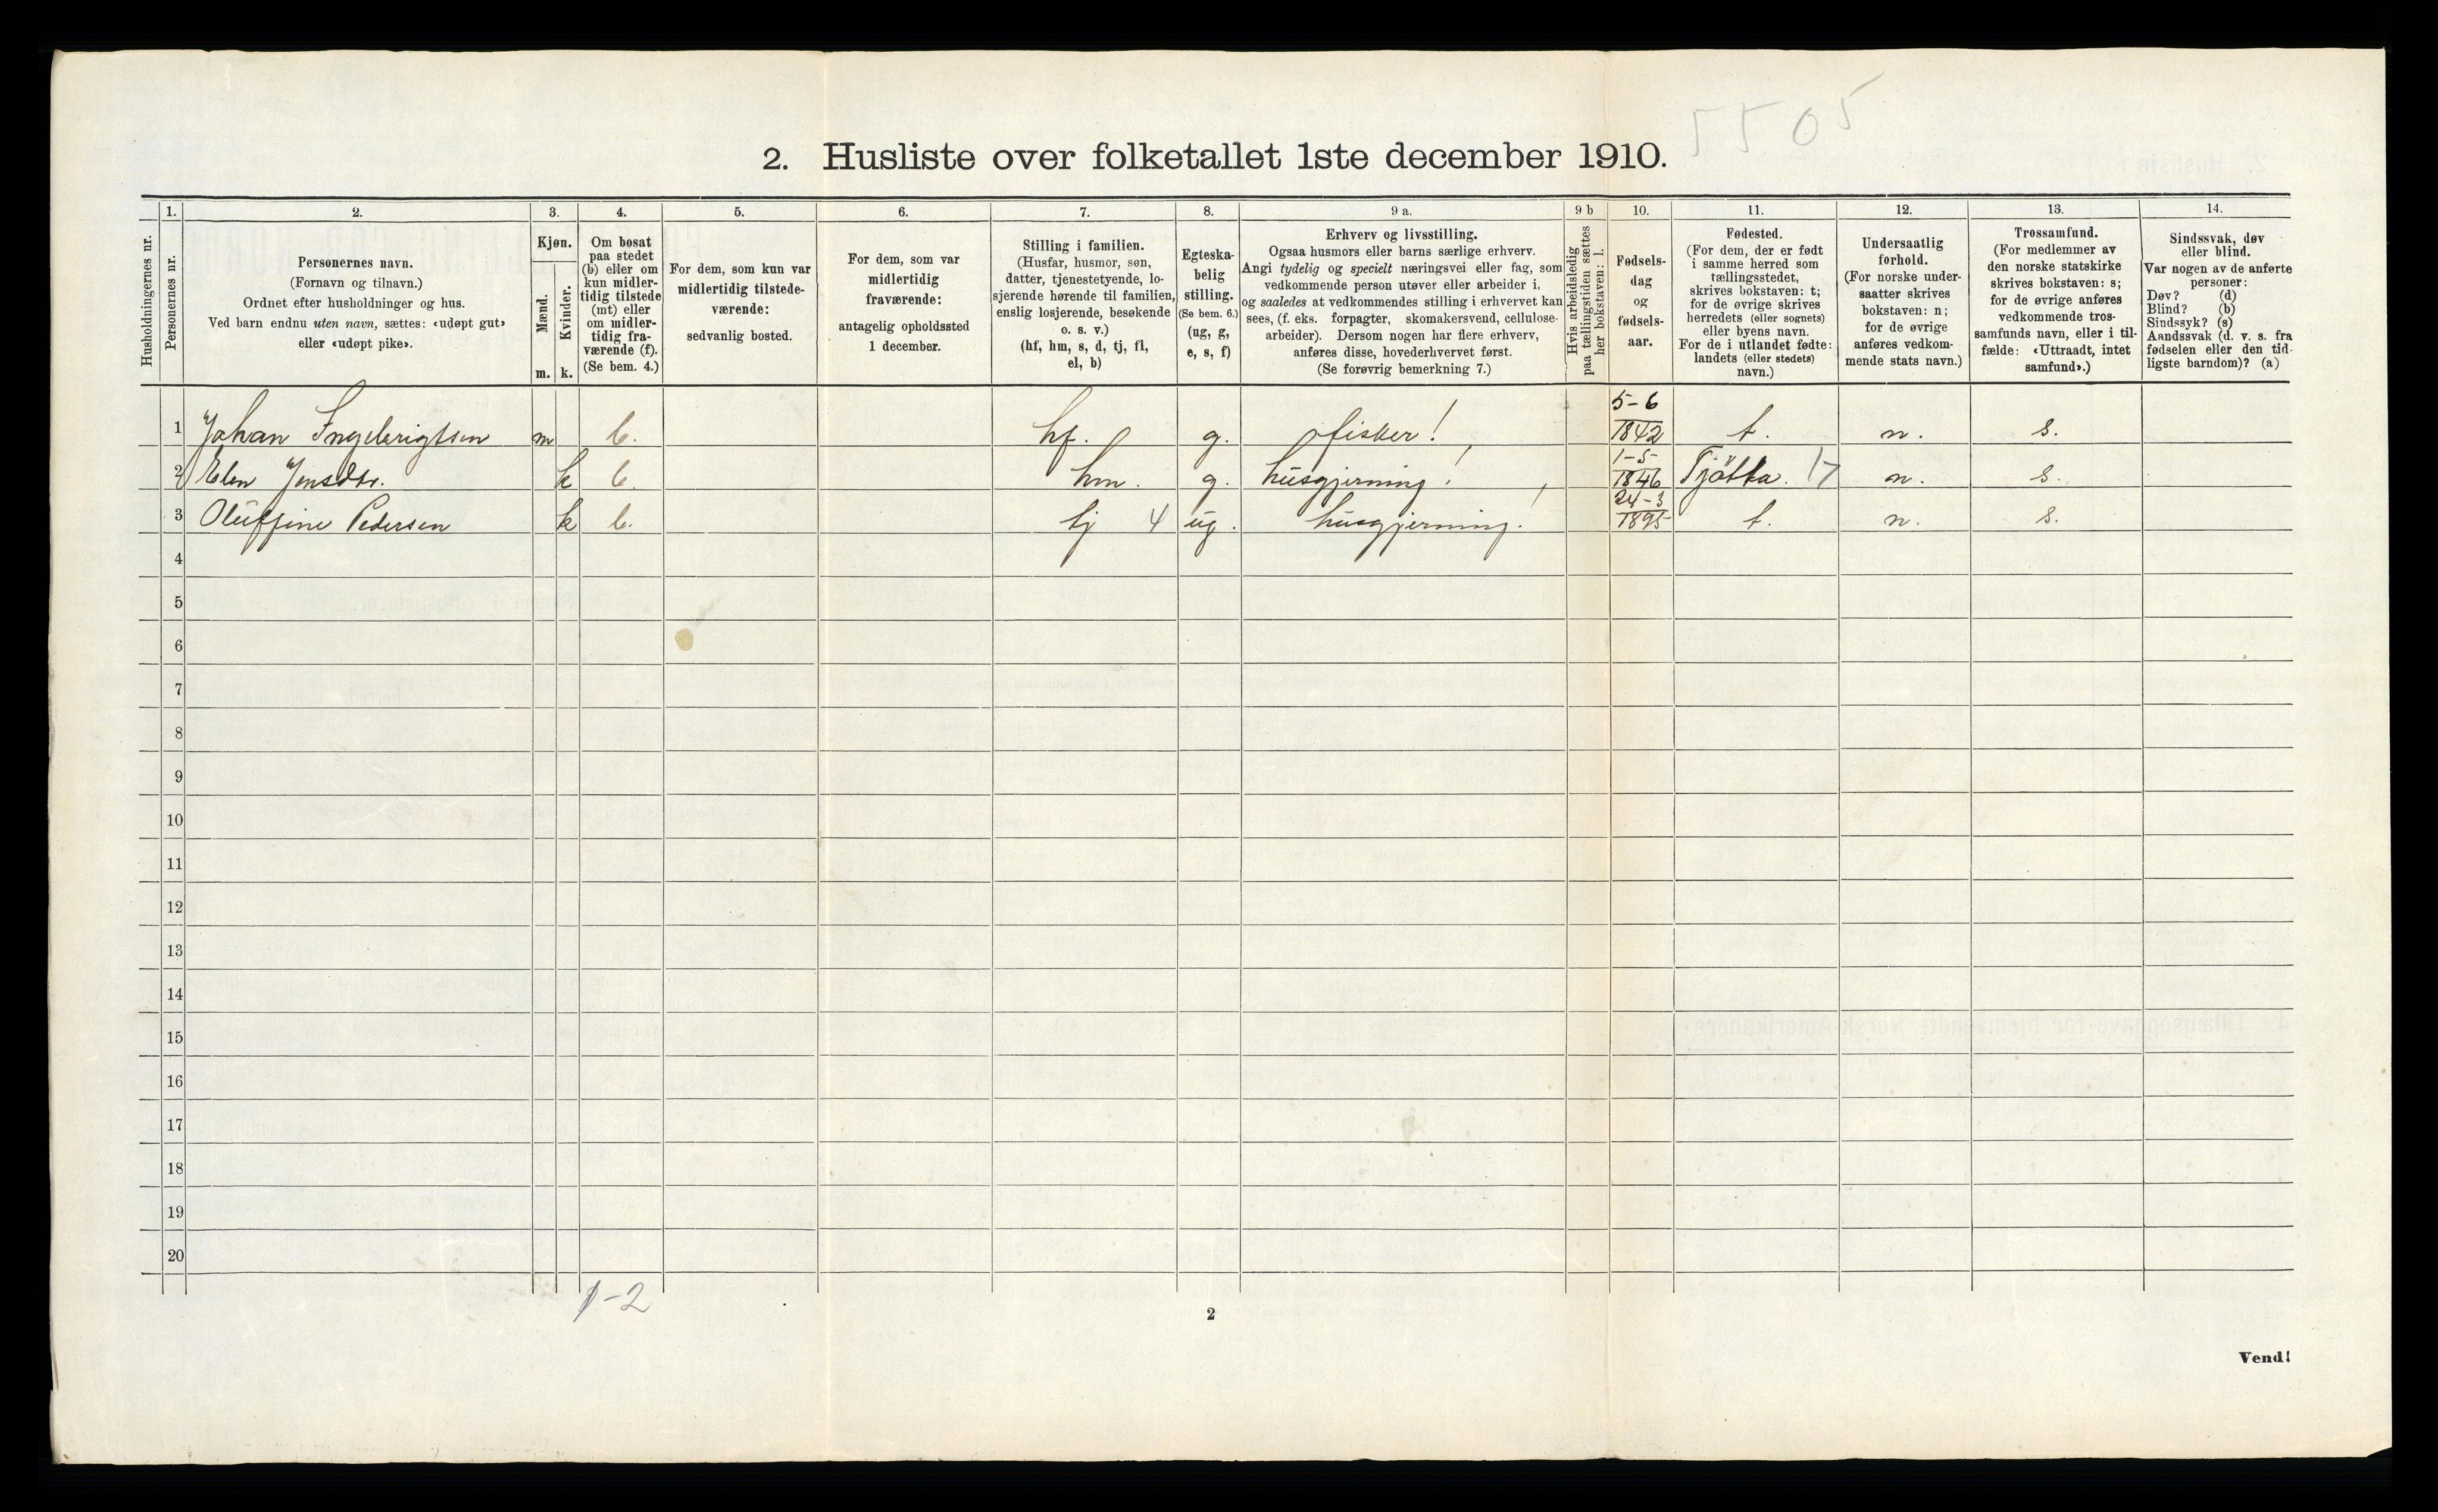 5505
2. Husliste over folketallet 1ste december 1910.
Husholdningernes nr.
1. Personernes nr.
2. Personernes navn. (Fornavn og tilnavn.) Ordnet efter husholdninger og hus. Ved barn endnu uten navn, sættes: «udøpt gut» eller «udøpt pike».
3. Kjøn. Mænd. m. Kvinder. k.
4. Om bosat paa stedet (b) eller om kun midler- tidig tilstede (mt) eller om midler- tidig fra- værende (f). (Se bem. 4.)
5. For dem, som kun var midlertidig tilstede- værende: sedvanlig bosted.
6. For dem, som var midlertidig fraværende: antagelig opholdssted 1 december.
7. Stilling i familien. (Husfar, husmor, søn, datter, tjenestetyende, lo- sjerende hørende til familien, enslig losjerende, besøkende o. s. v.) (hf, hm, s, d, tj, fl, el, b)
8. Egteska- belig stilling. (Se bem. 6.) (ug, g, e, s, f)
9 a. Erhverv og livsstilling. Ogsaa husmors eller barns særlige erhverv. Angi tydelig og specielt næringsvei eller fag, som vedkommende person utøver eller arbeider i, og saaledes at vedkommendes stilling i erhvervet kan sees, (f. eks. forpagter, skomakersvend, cellulose- arbeider). Dersom nogen har flere erhverv, anføres disse, hovederhvervet først. (Se forøvrig bemerkning 7.)
9 b Hvis arbeidsledig paa tællingstiden sættes her bokstaven: l.
10. Fødsels- dag og fødsels- aar.
11. Fødested. (For dem, der er født i samme herred som tællingsstedet, skrives bokstaven: t; for de øvrige skrives herredets (eller sognets) eller byens navn. For de i utlandet fødte: landets (eller stedets) navn.)
12. Undersaatlig forhold. (For norske under- saatter skrives bokstaven: n; for de øvrige anføres vedkom- mende stats navn.)
13. Trossamfund. (For medlemmer av den norske statskirke skrives bokstaven: s; for de øvrige anføres vedkommende tros- samfunds navn, eller i til- fælde: «Uttraadt, intet samfund».)
14. Sindssvak, døv eller blind. Var nogen av de anførte personer: Døv? (d) Blind? (b) Sindssyk? (s) Aandssvak (d. v. s. fra fødselen eller den tid- ligste barndom)? (a)
1 Johan Ingebrigtsen m b. hf. g. fisker! 5-6 1842 t. n. s.
2 Elen Jensdtr. k b. hm. g. husgjerning! 1-5- 1846 Tjøtta. 17 n. s.
3 Oluffine Pedersen k b. tj 4 ug. husgjerning! 24-3 1895 t. n. s.
4
5
6
7
8
9
10
11
12
13
14
15
16
17
18
19
20
1-2
2
Vend!